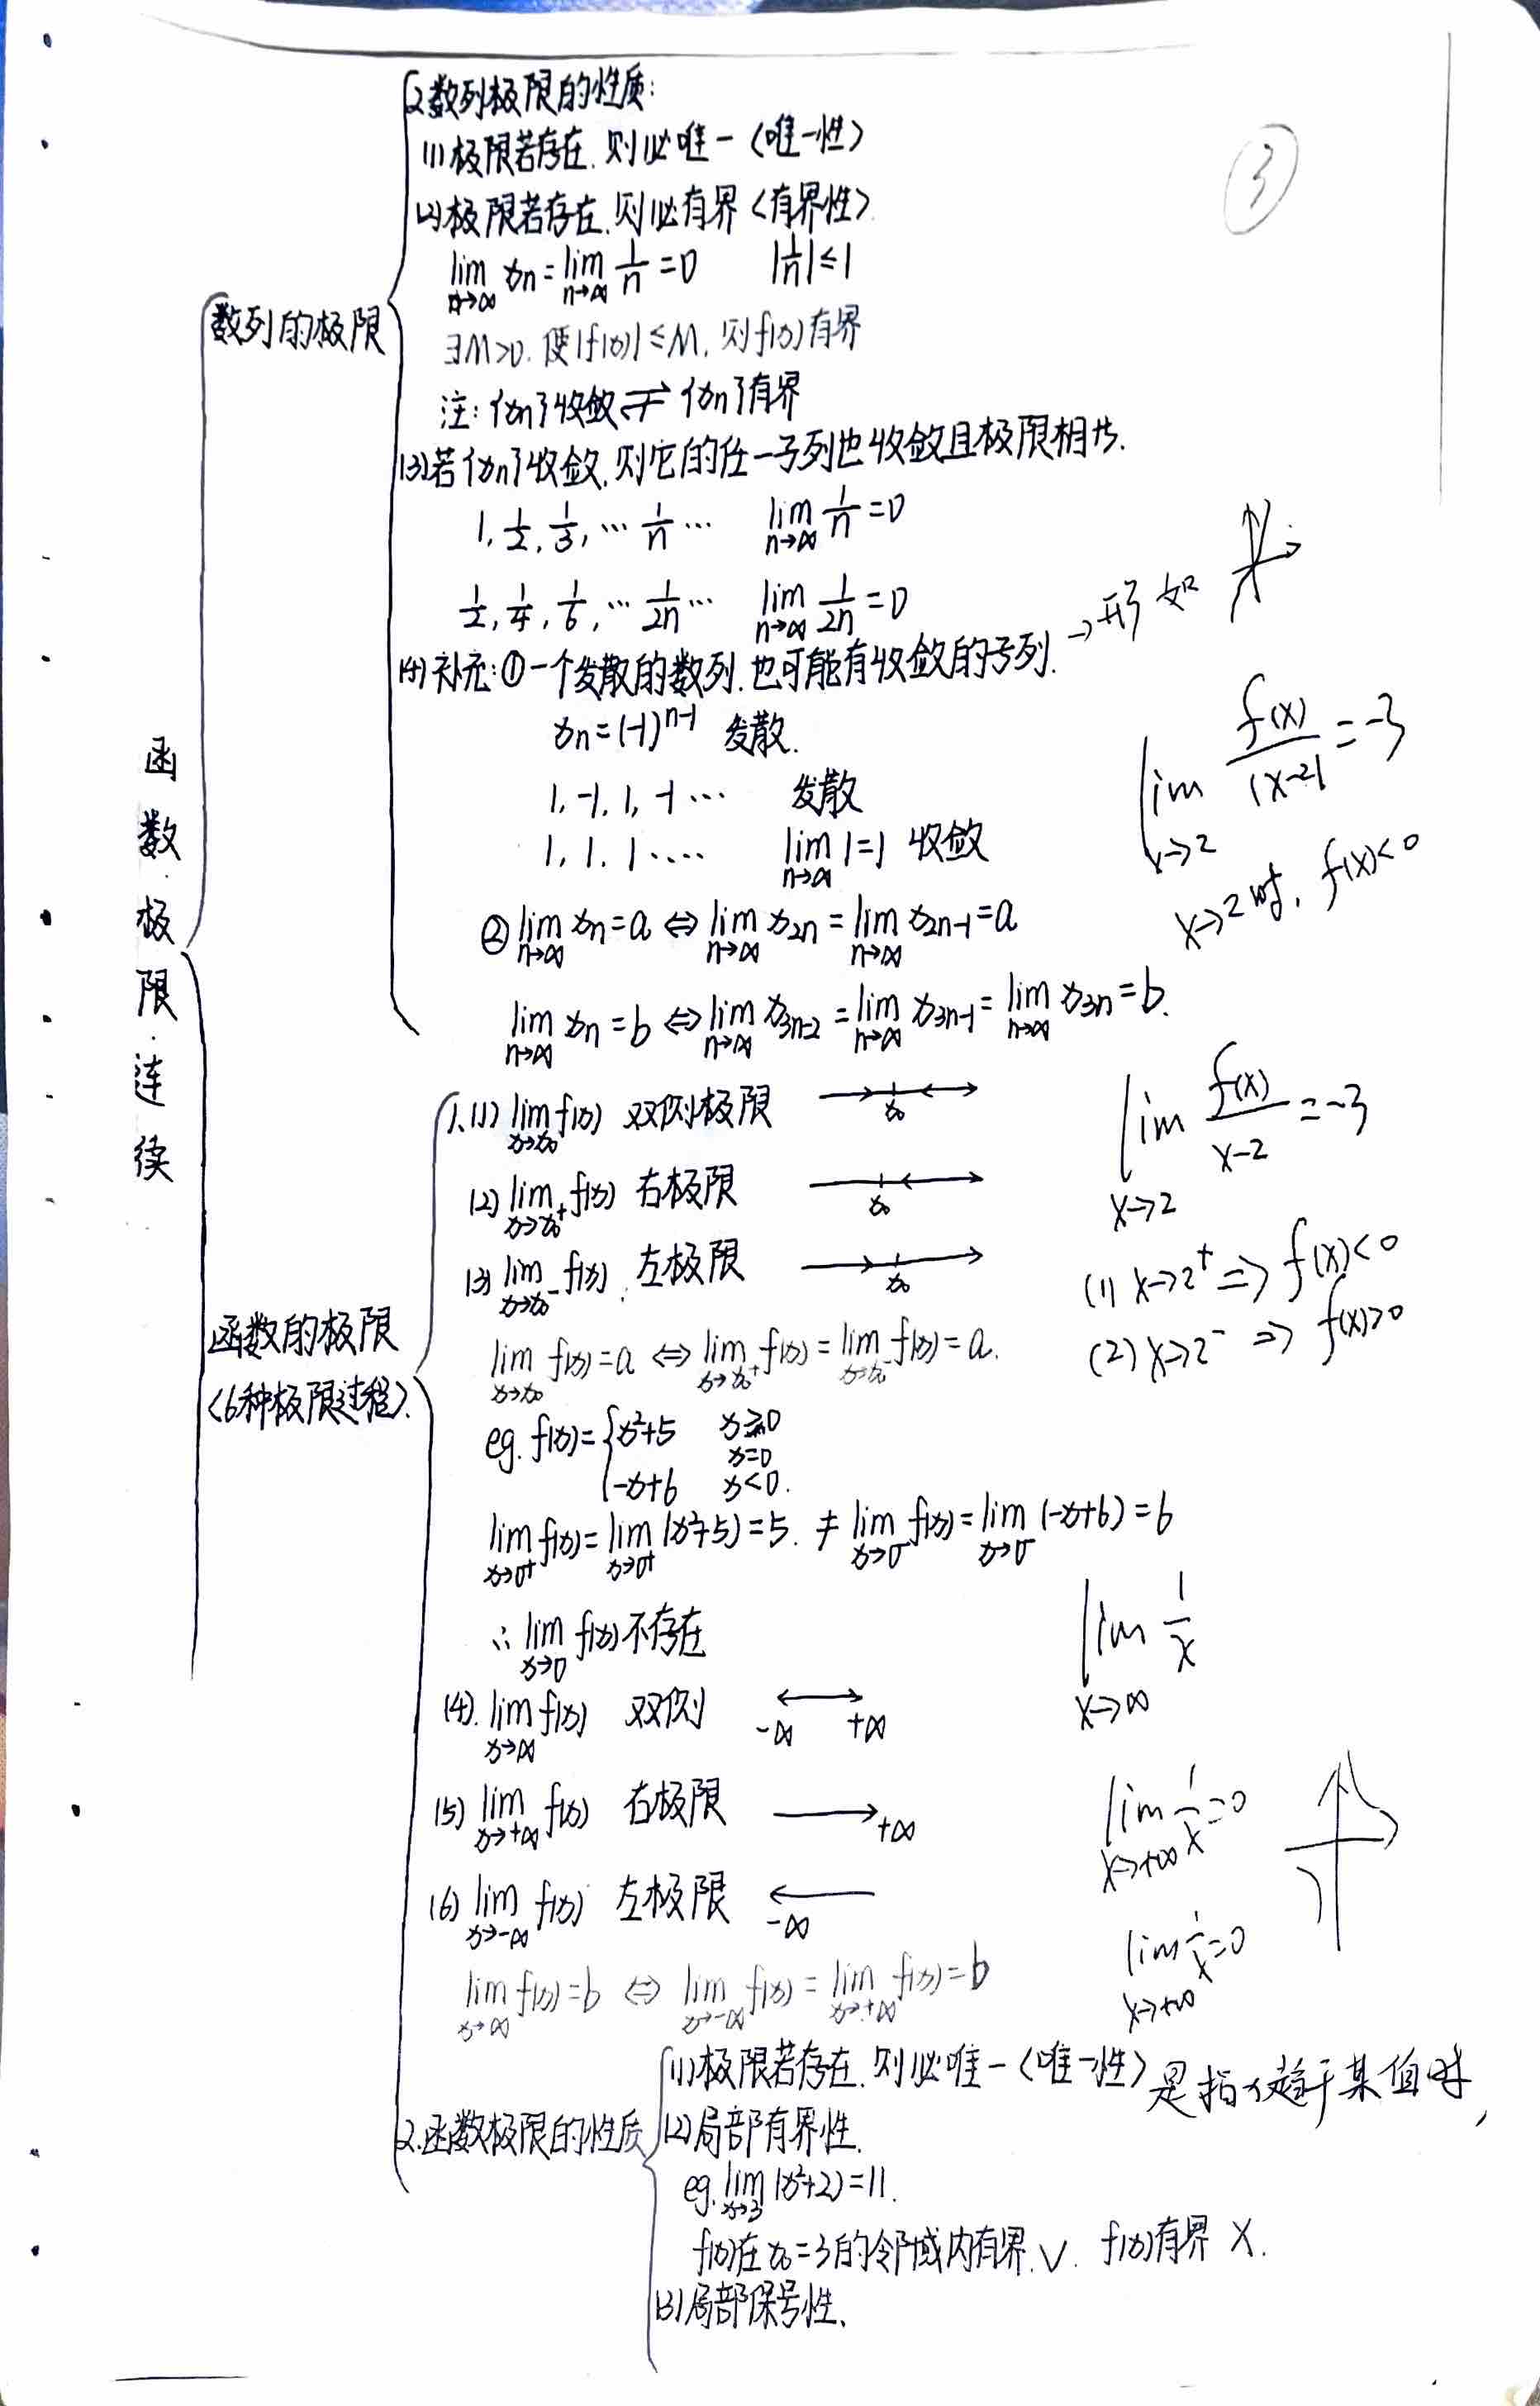 ③
函数.极限.连续
数列的极限
2.数列极限的性质:
(1)极限若存在,则必唯一<唯一性>
(2)极限若存在,则必有界<有界性>
lim n→∞ xn = lim n→∞ 1/n = 0  |1/n|≤1
∃M>0,使|f(x)|≤M,则f(x)有界
注:{xn}收敛⇄{xn}有界
(3)若{xn}收敛,则它的任一子列也收敛且极限相等.
1, 1/2, 1/3, … 1/n …  lim n→∞ 1/n = 0
1/2, 1/4, 1/6, … 1/2n …  lim n→∞ 1/2n = 0
(4)补充:①一个发散的数列,也可能有收敛的子列. →形如
xn=(-1)^(n-1) 发散.
1, -1, 1, -1 … 发散
1, 1, 1 …. lim n→∞ 1=1 收敛
② lim n→∞ xn = a ⇔ lim n→∞ x2n = lim n→∞ x2n-1 = a
lim n→∞ xn = b ⇔ lim n→∞ x3n-2 = lim n→∞ x3n-1 = lim n→∞ x3n = b.
lim x→2 f(x)/|x-2| = -3
x→2时, f(x)<0
函数的极限
<6种极限过程>
1.(1) lim x→x0 f(x) 双侧极限 x0
(2) lim x→x0+ f(x) 右极限 x0
(3) lim x→x0- f(x) 左极限 x0
lim x→x0 f(x)=a ⇔ lim x→x0+ f(x) = lim x→x0- f(x) = a.
lim x→2 f(x)/(x-2) = -3
(1) x→2+ ⇒ f(x)<0
(2) x→2- ⇒ f(x)>0
eg. f(x)={ x²+5  x≥0
x=0
-x+6  x<0.
lim x→0+ f(x) = lim x→0+ (x²+5) = 5. ≠ lim x→0- f(x) = lim x→0- (-x+6) = 6
∴ lim x→0 f(x)不存在
(4). lim x→∞ f(x) 双侧 -∞ +∞
(5) lim x→+∞ f(x) 右极限 +∞
(6) lim x→-∞ f(x) 左极限 -∞
lim x→∞ f(x)=b ⇔ lim x→-∞ f(x) = lim x→+∞ f(x) = b
lim x→∞ 1/x
lim x→+∞ 1/x = 0
lim x→+∞ 1/x = 0
2.函数极限的性质
(1)极限若存在,则必唯一<唯一性> 是指x趋于某值时,
(2)局部有界性.
eg. lim x→3 (x²+2)=11.
f(x)在x0=3的邻域内有界.√. f(x)有界 ×.
(3)局部保号性.